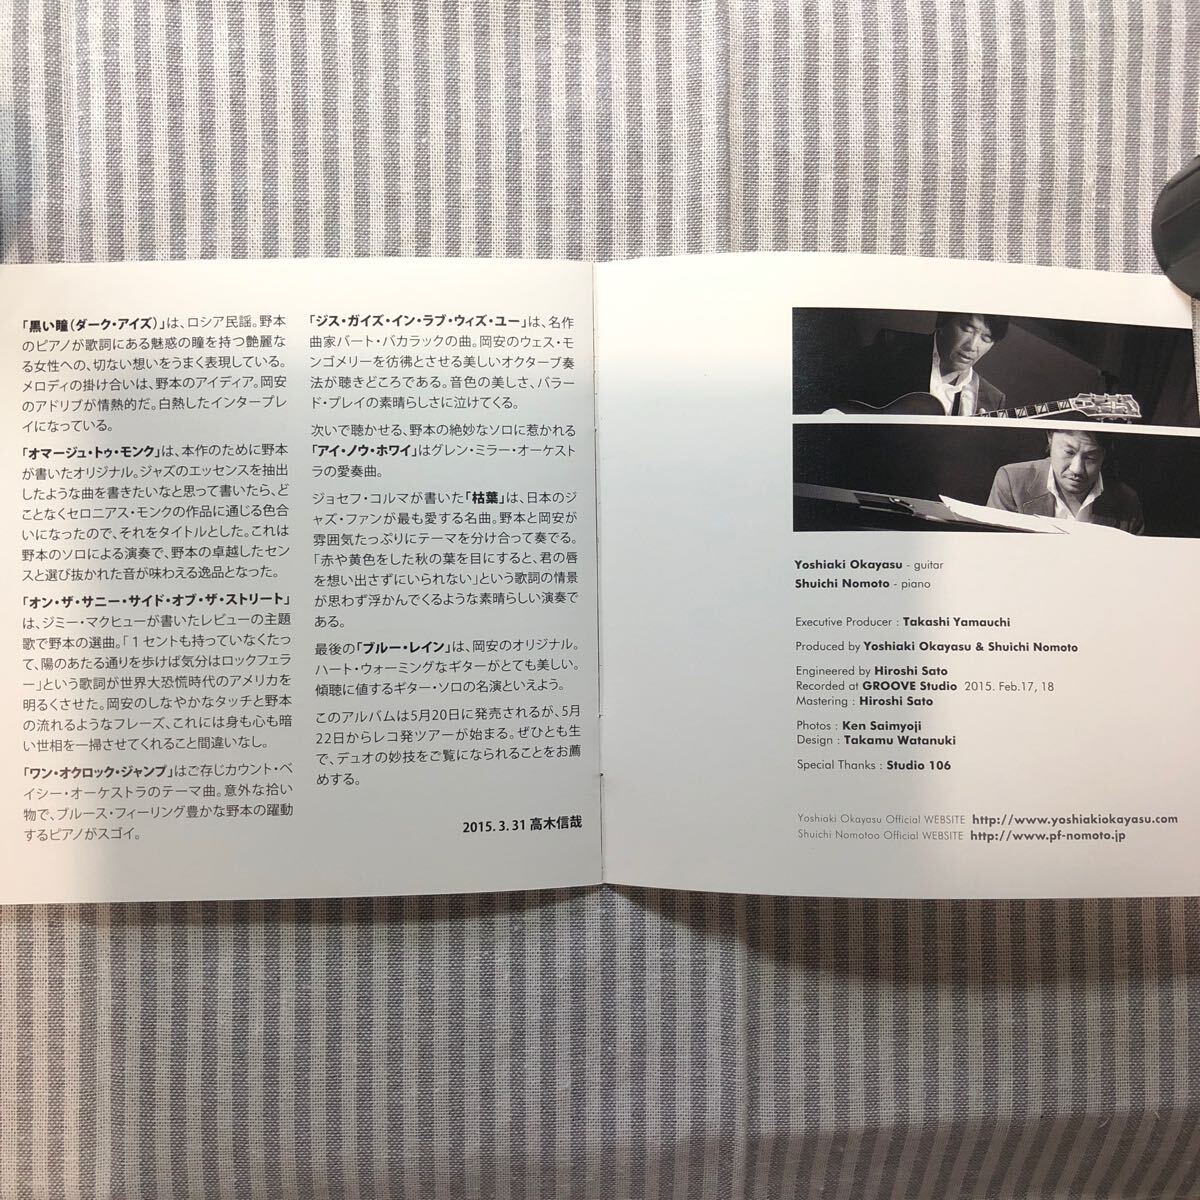 「黒い瞳(ダーク・アイズ)」は、ロシア民謡。野本
のピアノが歌詞にある魅惑の瞳を持つ艶麗な
る女性への、切ない想いをうまく表現している。
メロディの掛け合いは、野本のアイディア。岡安
のアドリブが情熱的だ。白熱したインタープレ
イになっている。
「オマージュ・トゥ・モンク」は、本作のために野本
が書いたオリジナル。ジャズのエッセンスを抽出
したような曲を書きたいなと思って書いたら、ど
ことなくセロニアス・モンクの作品に通じる色合
いになったので、それをタイトルとした。これは
野本のソロによる演奏で、野本の卓越したセン
スと選び抜かれた音が味わえる逸品となった。
「オン・ザ・サニー・サイド・オブ・ザ・ストリート」
は、ジミー・マクヒューが書いたレビューの主題
歌で野本の選曲。「1セントも持っていなくたっ
て、陽のあたる通りを歩けば気分はロックフェラ
ー」という歌詞が世界大恐慌時代のアメリカを
明るくさせた。岡安のしなやかなタッチと野本
の流れるようなフレーズ、これには身も心も暗
い世相を一掃させてくれること間違いなし。
「ワン・オクロック・ジャンプ」はご存じカウント・ベ
イシー・オーケストラのテーマ曲。意外な拾い
物で、ブルース・フィーリング豊かな野本の躍動
するピアノがスゴイ。
「ジス・ガイズ・イン・ラブ・ウィズ・ユー」は、名作
曲家バート・バカラックの曲。岡安のウェス・モ
ンゴメリーを彷彿とさせる美しいオクターブ奏
法が聴きどころである。音色の美しさ、バラー
ド・プレイの素晴らしさに泣けてくる。
次いで聴かせる、野本の絶妙なソロに惹かれる
「アイ・ノウ・ホワイ」はグレン・ミラー・オーケスト
ラの愛奏曲。
ジョセフ・コルマが書いた「枯葉」は、日本のジ
ャズ・ファンが最も愛する名曲。野本と岡安が
雰囲気たっぷりにテーマを分け合って奏でる。
「赤や黄色をした秋の葉を目にすると、君の唇
を想い出さずにいられない」という歌詞の情景
が思わず浮かんでくるような素晴らしい演奏で
ある。
最後の「ブルー・レイン」は、岡安のオリジナル。
ハート・ウォーミングなギターがとても美しい。
傾聴に値するギター・ソロの名演といえよう。
このアルバムは5月20日に発売されるが、5月
22日からレコ発ツアーが始まる。ぜひとも生
で、デュオの妙技をご覧になられることをお薦
めする。
2015. 3. 31 高木信哉
Yoshiaki Okayasu - guitar
Shuichi Nomoto - piano
Executive Producer : Takashi Yamauchi
Produced by Yoshiaki Okayasu & Shuichi Nomoto
Engineered by Hiroshi Sato
Recorded at GROOVE Studio 2015. Feb.17, 18
Mastering : Hiroshi Sato
Photos : Ken Saimyoji
Design : Takamu Watanuki
Special Thanks : Studio 106
Yoshiaki Okayasu Official WEBSITE http://www.yoshiakiokayasu.com
Shuichi Nomotoo Official WEBSITE http://www.pf-nomoto.jp